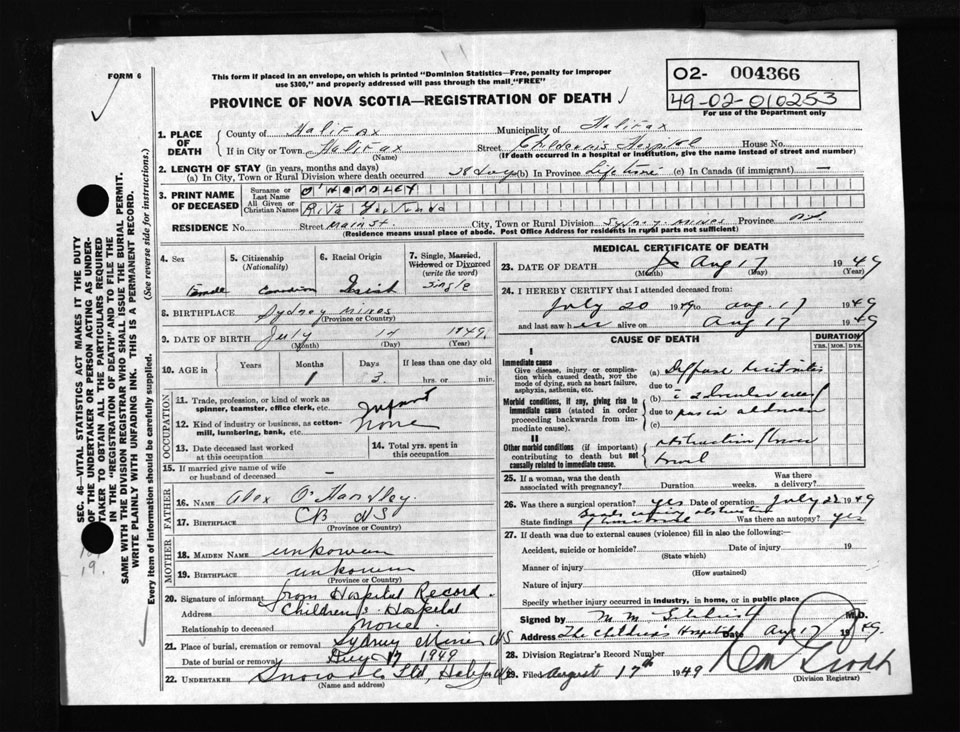 FORM 6
This form if placed in an envelope, on which is printed "Dominion Statistics—Free, penalty for improper
use $300," and properly addressed will pass through the mail "FREE"
O2- 004366
49-02-010253
For use of the Department only
PROVINCE OF NOVA SCOTIA—REGISTRATION OF DEATH
1. PLACE OF DEATH
County of Halifax Municipality of Halifax
If in City or Town Halifax Street Children's Hospital House No.
(Name) (If death occurred in a hospital or institution, give the name instead of street and number)
2. LENGTH OF STAY (in years, months and days)
(a) In City, Town or Rural Division where death occurred 28 days (b) In Province Life time (c) In Canada (if immigrant) —
3. PRINT NAME OF DECEASED
Surname or Last Name O'HANDLEY
All Given or Christian Names Rita
RESIDENCE No. Street Main St. City, Town or Rural Division Sydney Mines Province N.S.
(Residence means usual place of abode. Post Office Address for residents in rural parts not sufficient)
4. Sex
Female
5. Citizenship
(Nationality)
Canadian
6. Racial Origin
Irish
7. Single, Married, Widowed or Divorced
(write the word)
Single
8. BIRTHPLACE Sydney Mines
(Province or Country)
9. DATE OF BIRTH July 14 1949
(Month) (Day) (Year)
10. AGE in Years Months Days If less than one day old
1 3 hrs. or min.
OCCUPATION
11. Trade, profession, or kind of work as
spinner, teamster, office clerk, etc. Infant
12. Kind of industry or business, as cotton-
mill, lumbering, bank, etc. None
13. Date deceased last worked
at this occupation
14. Total yrs. spent in
this occupation
15. If married give name of wife
or husband of deceased —
FATHER
16. NAME Alex O'Handley
17. BIRTHPLACE CB NS
(Province or Country)
MOTHER
18. MAIDEN NAME unknown
19. BIRTHPLACE unknown
(Province or Country)
20. Signature of informant from Hospital Record.
Address Children's Hospital
Relationship to deceased None
21. Place of burial, cremation or removal Sydney Mines NS
Date of burial or removal Aug 17 1949
22. UNDERTAKER Snow & Co Ltd, Halifax NS
(Name and address)
MEDICAL CERTIFICATE OF DEATH
23. DATE OF DEATH Aug 17 1949
(Month) (Day) (Year)
24. I HEREBY CERTIFY that I attended deceased from:
July 20 1949 to Aug. 17 1949
and last saw her alive on Aug 17 1949
CAUSE OF DEATH
DURATION
YRS. MOS. DYS.
I
Immediate cause
Give disease, injury or complica-
tion which caused death, NOT the
mode of dying, such as heart failure,
asphyxia, asthenia, etc.
(a) Diffuse peritonitis
due to
Morbid conditions, if any, giving rise to
immediate cause (stated in order
proceeding backwards from im-
mediate cause).
(b)
due to
(c)
II
Other morbid conditions (if important)
contributing to death but not
causally related to immediate cause.
obstruction
bowel
25. If a woman, was the death
associated with pregnancy? Duration weeks. Was there
a delivery?
26. Was there a surgical operation? yes Date of operation July 22 1949
State findings Bands causing obstruction
Was there an autopsy? yes
27. If death was due to external causes (violence) fill in also the following:
Accident, suicide or homicide? Date of injury 19
(State which)
Manner of injury
(How sustained)
Nature of injury
Specify whether injury occurred in Industry, in home, or in public place
Signed by M.D.
Address The Children's Hospital Date Aug 17 1949.
28. Division Registrar's Record Number
29. Filed August 17th 1949
(Division Registrar)
SEC. 46—VITAL STATISTICS ACT MAKES IT THE DUTY
OF THE UNDERTAKER OR PERSON ACTING AS UNDER-
TAKER TO OBTAIN ALL THE PARTICULARS REQUIRED
IN THE "REGISTRATION OF DEATH" AND TO FILE THE
SAME WITH THE DIVISION REGISTRAR WHO SHALL ISSUE THE BURIAL PERMIT.
WRITE PLAINLY WITH UNFADING INK. THIS IS A PERMANENT RECORD.
Every item of information should be carefully supplied. (See reverse side for instructions.)
19.